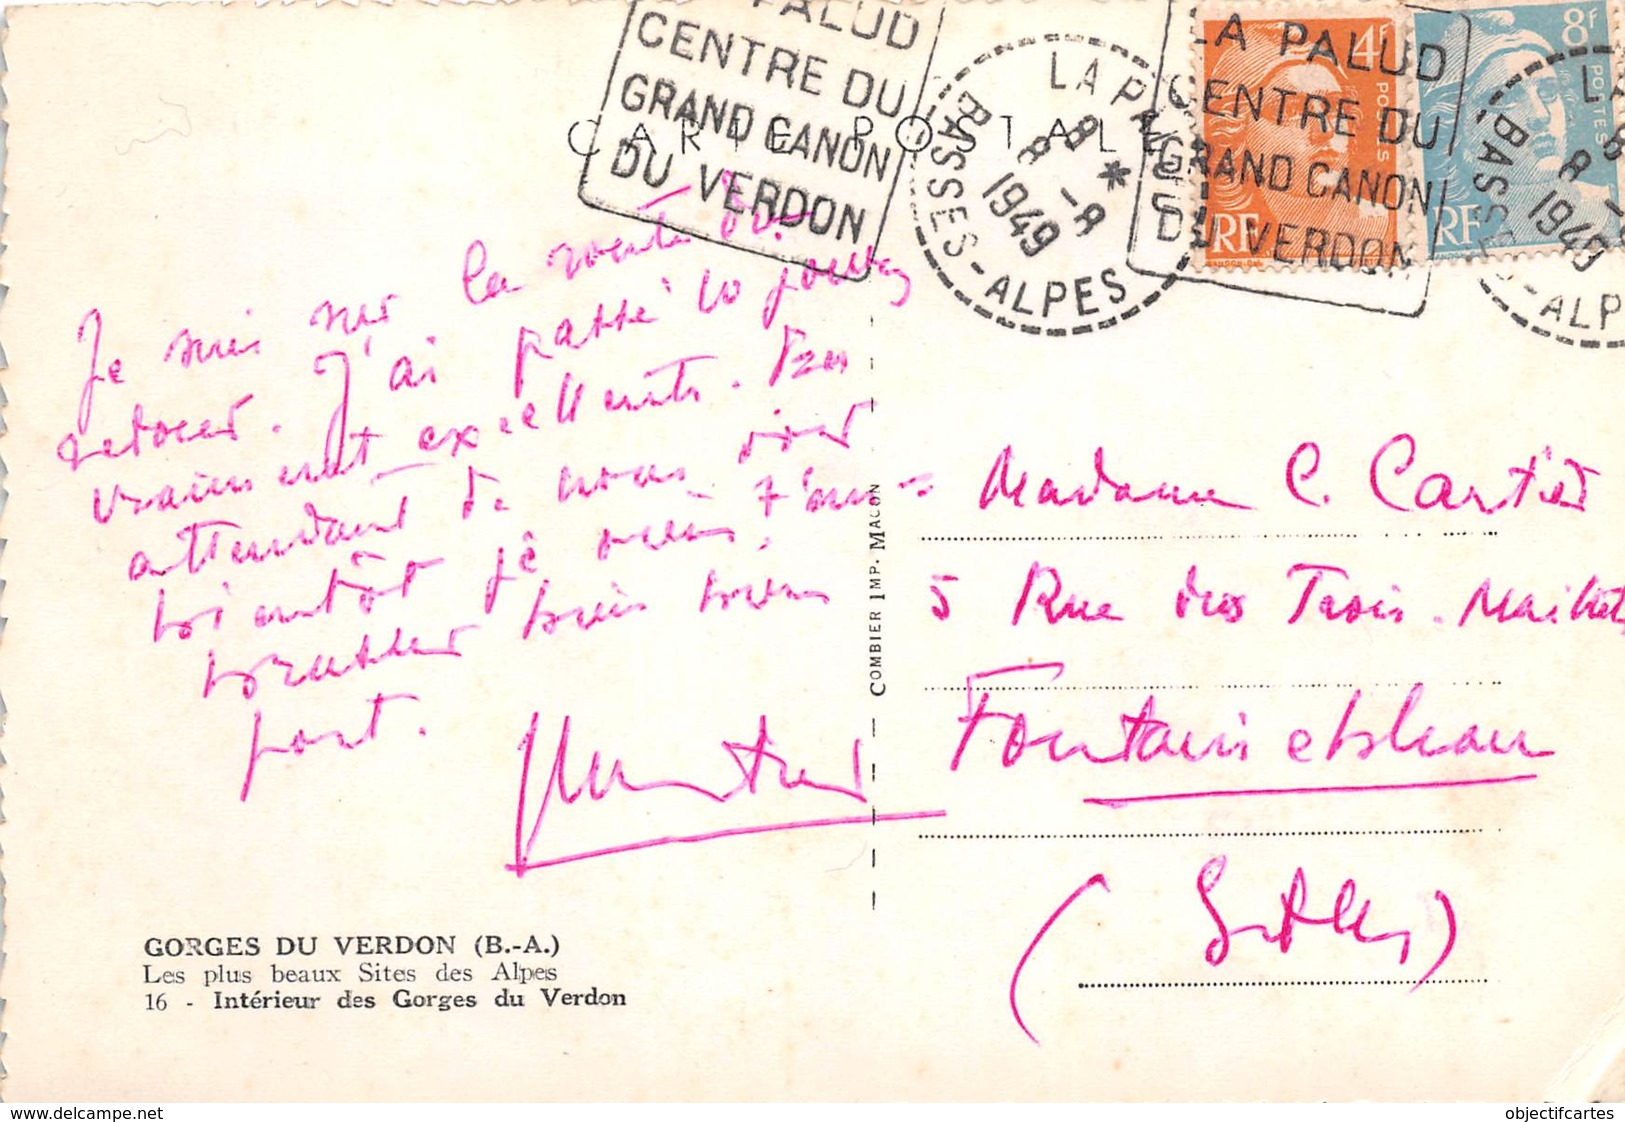 PALUD
CENTRE DU
GRAND CANON
DU VERDON
LA PALUD
BASSES-ALPES
8 -8
8
1949
LA PALUD
CENTRE DU
GRAND CANON
DU VERDON
4F
POSTES
RF
8F
POSTES
RF
BASSES-ALP
8
1949
CARTE POSTALE
Je suis sur la route du
retour. J'ai passé 10 jours
vraiment excellents. En
attendant de nous voir
bientôt je viens t'em=
brasser bien bien
fort.
Madame C. Cartier
5 Rue des Trois. Maillets
Fontainebleau
(S
COMBIER IMP. MACON
GORGES DU VERDON (B.-A.)
Les plus beaux Sites des Alpes
16 - Intérieur des Gorges du Verdon
www.delcampe.net
objectifcartes